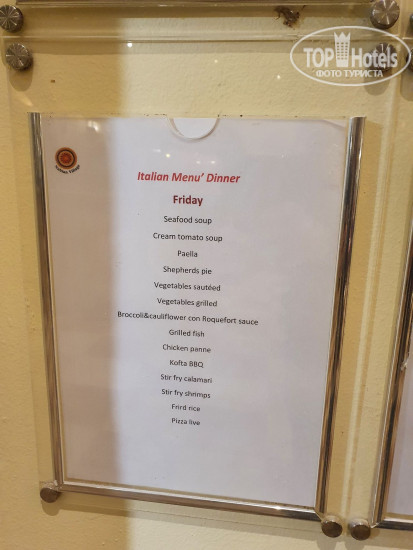 TOPHotels
ФОТО ТУРИСТА
Italian Menu' Dinner
Friday
Seafood soup
Cream tomato soup
Paella
Shepherds pie
Vegetables sautéed
Vegetables grilled
Broccoli&cauliflower con Roquefort sauce
Grilled fish
Chicken panne
Kofta BBQ
Stir fry calamari
Stir fry shrimps
Frird rice
Pizza live